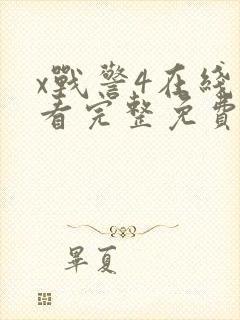 x戰警4在綫
看完整免費
畢夏